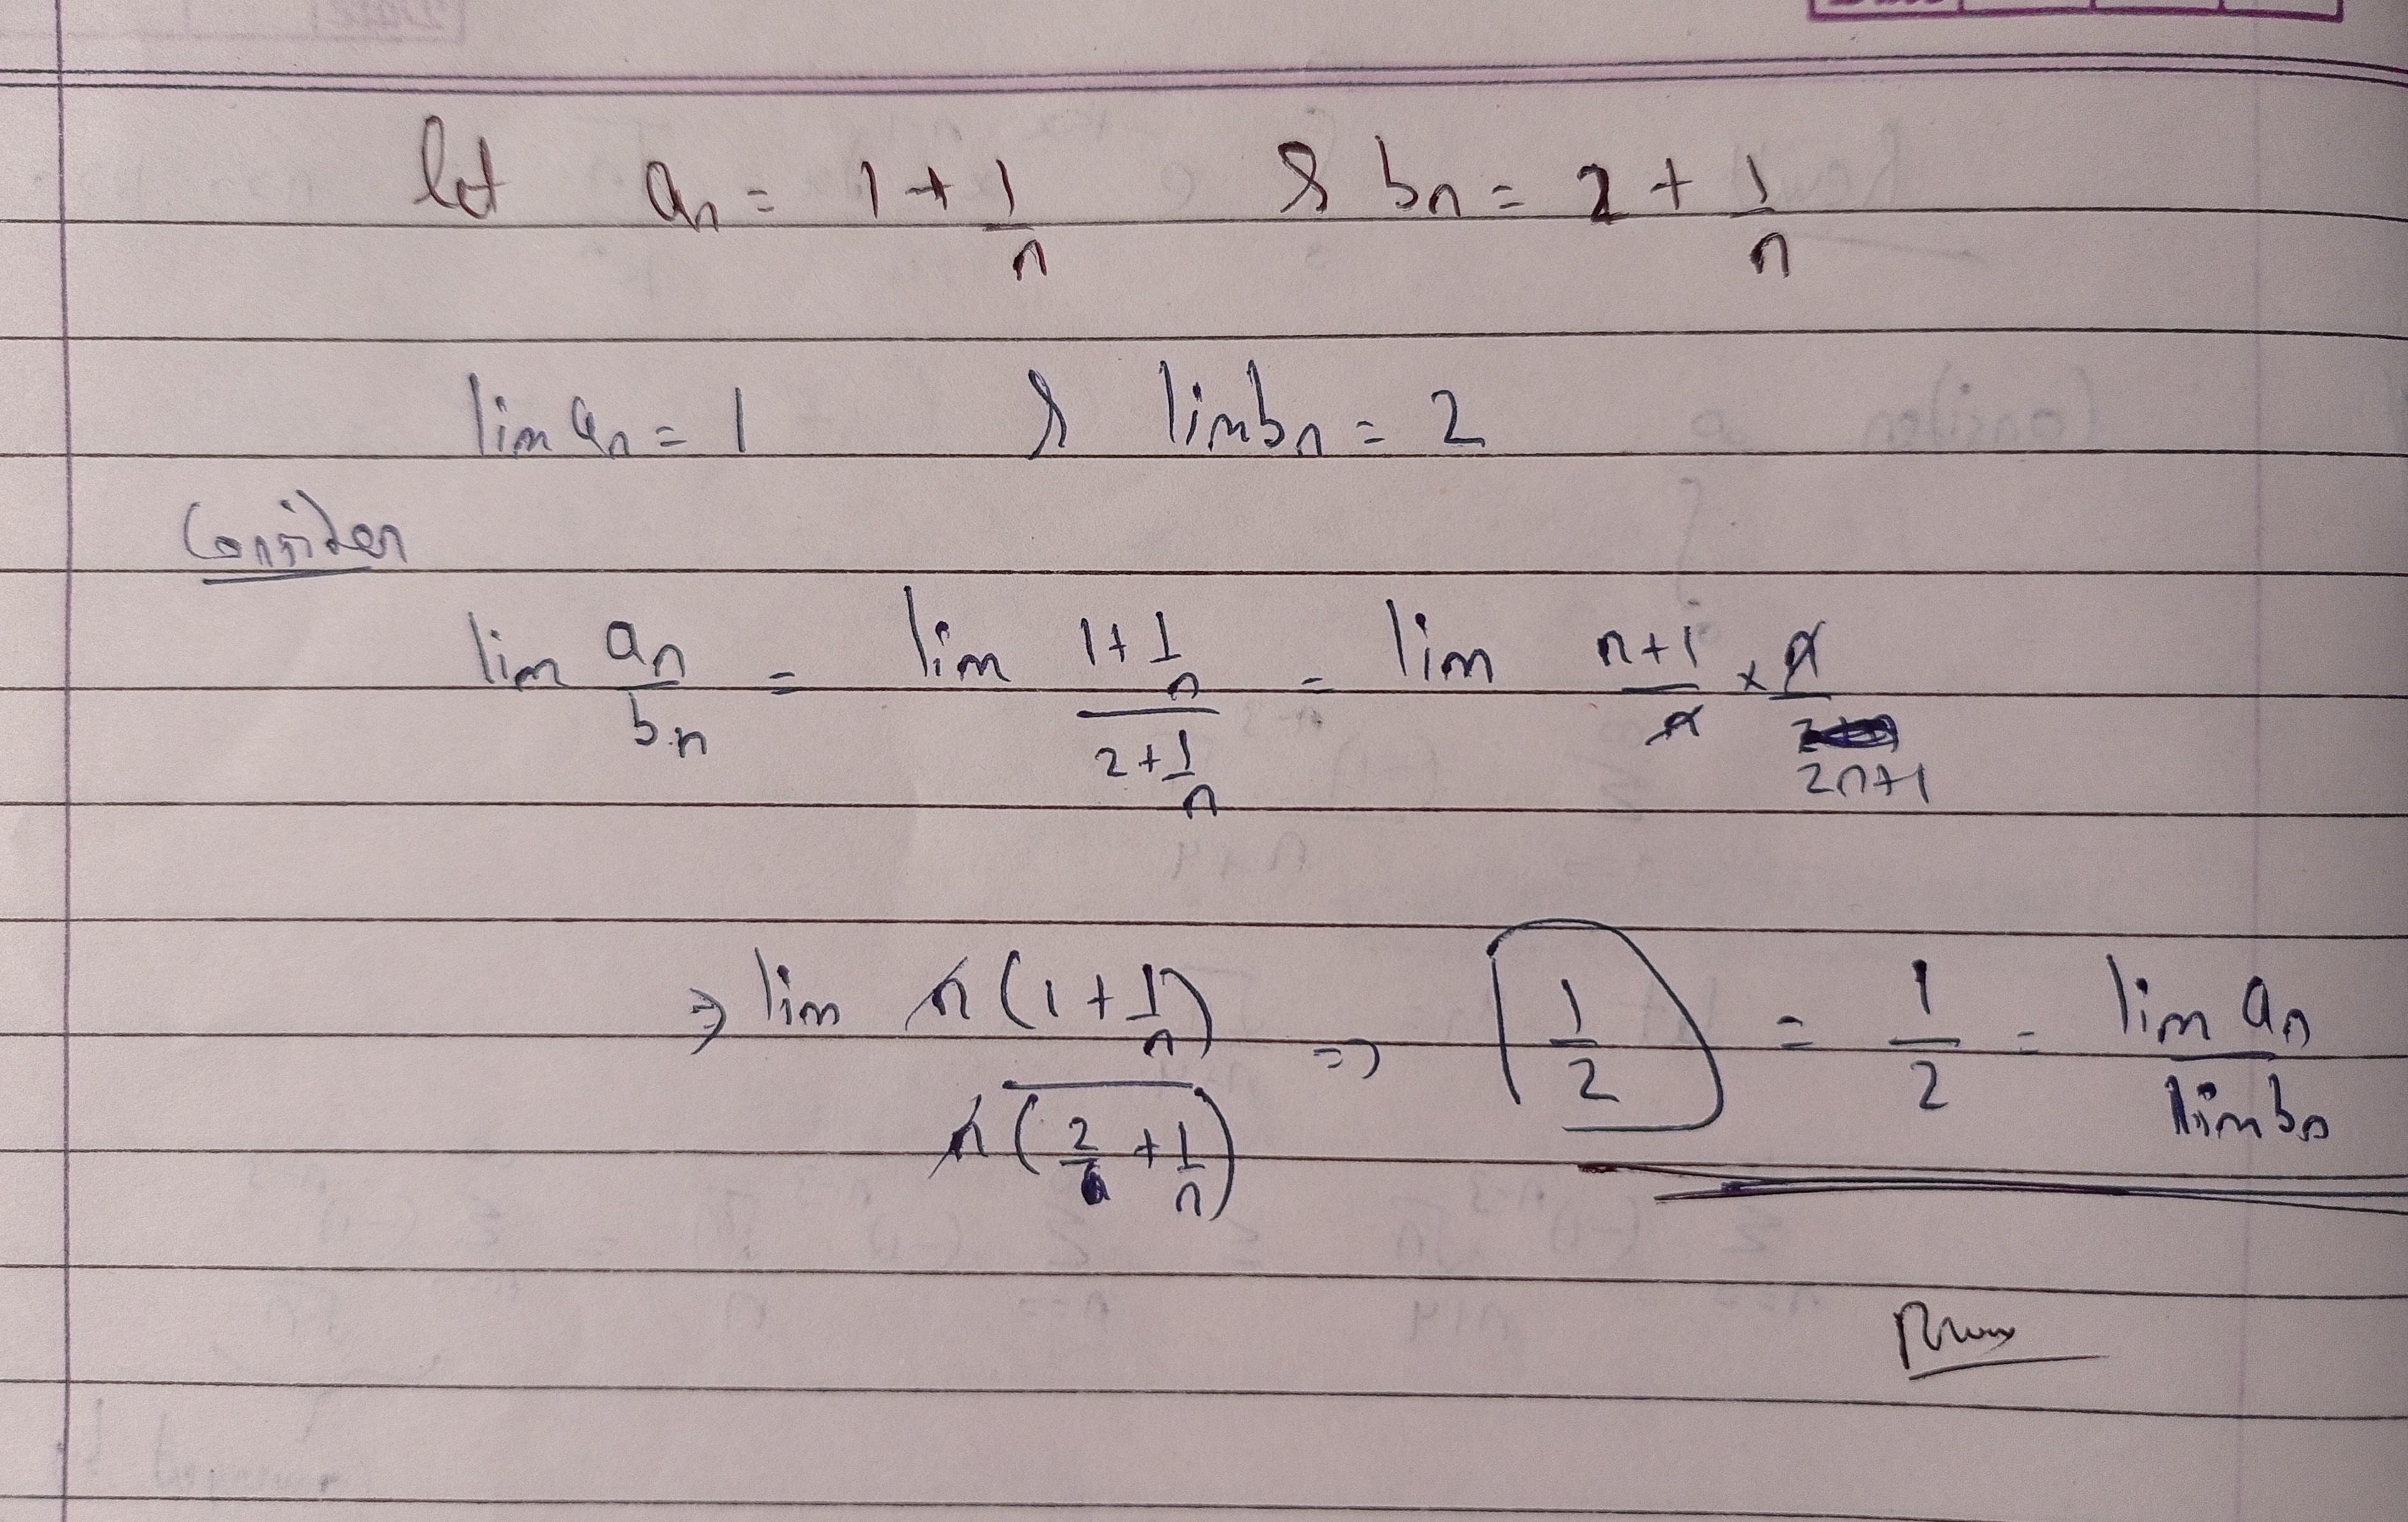 let aₙ = 1 + 1/n & bₙ = 2 + 1/n
lim aₙ = 1 & lim bₙ = 2
Consider
lim aₙ/bₙ = lim (1 + 1/n)/(2 + 1/n) = lim (n+1)/n × n/(2n+1)
⇒ lim n(1 + 1/n)/n(2 + 1/n) ⇒ 1/2 = 1/2 = lim aₙ/lim bₙ